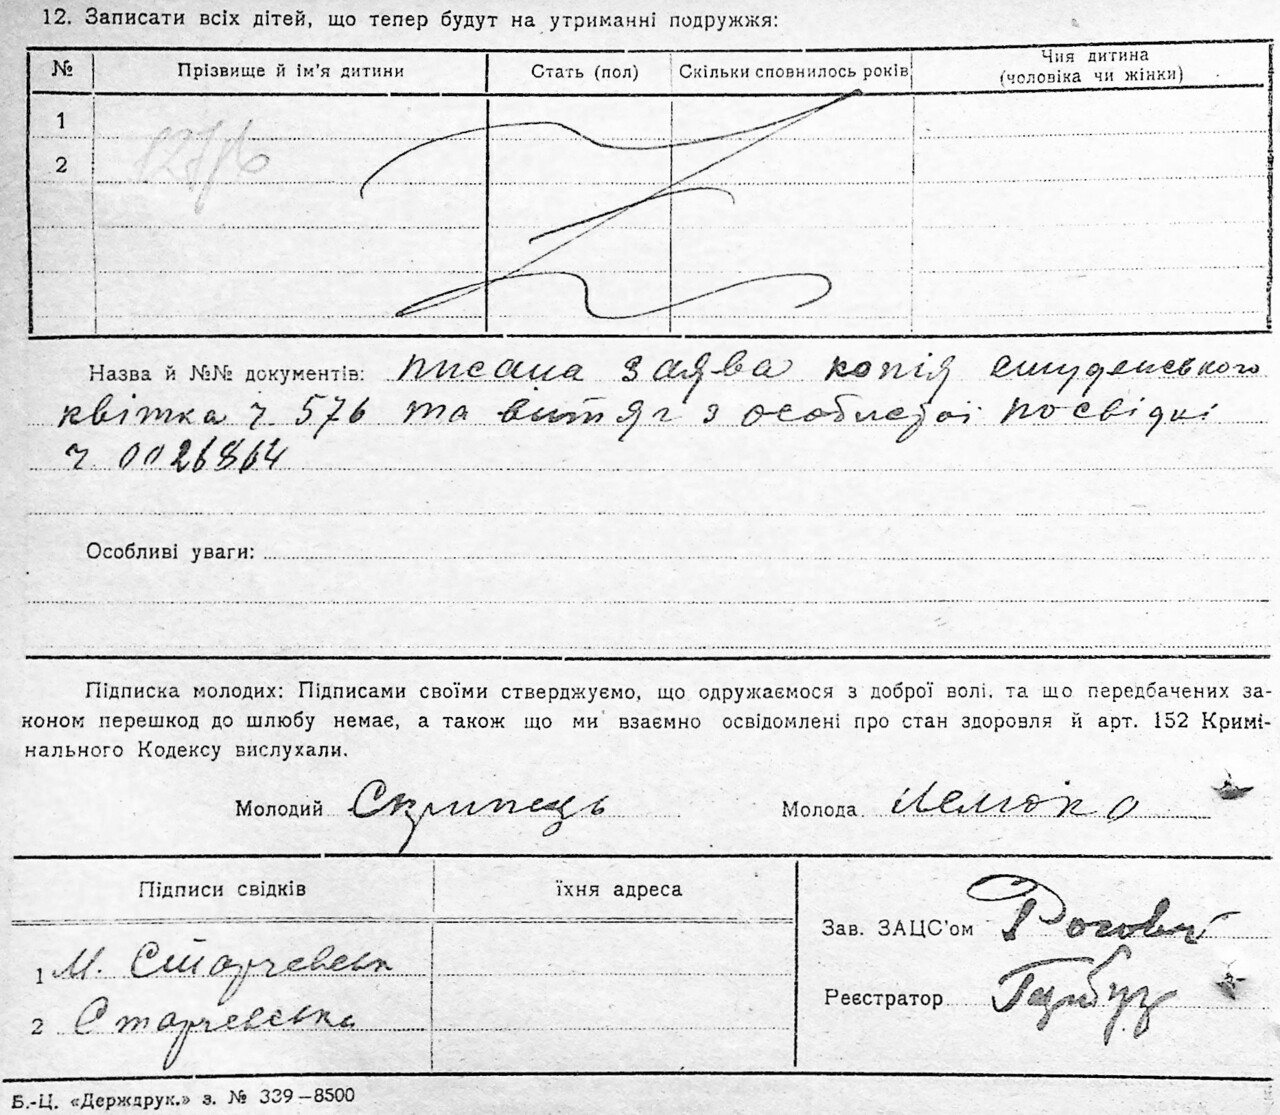 12. Записати всіх дітей, що тепер будут на утриманні подружжя:
№ Прізвище й ім'я дитини Стать (пол) Скільки сповнилось років Чия дитина
(чоловіка чи жінки)
1
2
Назва й №№ документів: писана заява копія студенського
квітка ч. 576 та витяг з особистої посвідкі
ч 0026864
Особливі уваги:
Підписка молодих: Підписами своїми стверджуємо, що одружаємося з доброї волі, та що передбачених за-
коном перешкод до шлюбу немає, а також що ми взаємно освідомлені про стан здоровля й арт. 152 Кримі-
нального Кодексу вислухали.
Молодий Скрипець Молода
Підписи свідків їхня адреса
Зав. ЗАЦС'ом
1 М. Старчевськ
Реєстратор Гарбуз
2 Старчевська
Б.-Ц. «Держдрук.» з. № 339—8500